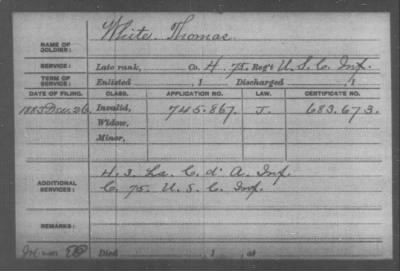 White, Thomas.
NAME OF SOLDIER:
SERVICE: Late rank, Co. H. 75. Reg't U. S. C. Inf.
TERM OF SERVICE: Enlisted , 1 Discharged , 1
DATE OF FILING. CLASS. APPLICATION NO. LAW. CERTIFICATE NO.
Dec. 26 Invalid, 745.867. J. 683.673.
Widow,
Minor,
ADDITIONAL SERVICES: H. 3. La. C. d' A. Inf.
C. 75. U. S. C. Inf.
REMARKS:
Died , 1 , at